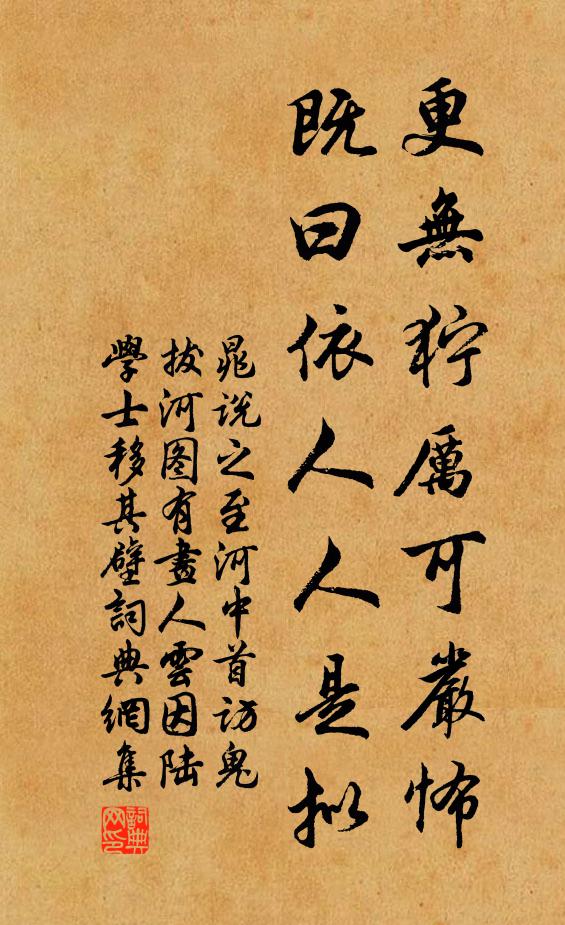 更無狞厲可嚴怖
既曰依人人是拟
晁説之至河中首访鬼
拔河图有畫人雲因陆
學士移其壁詞典網集
詞典网印